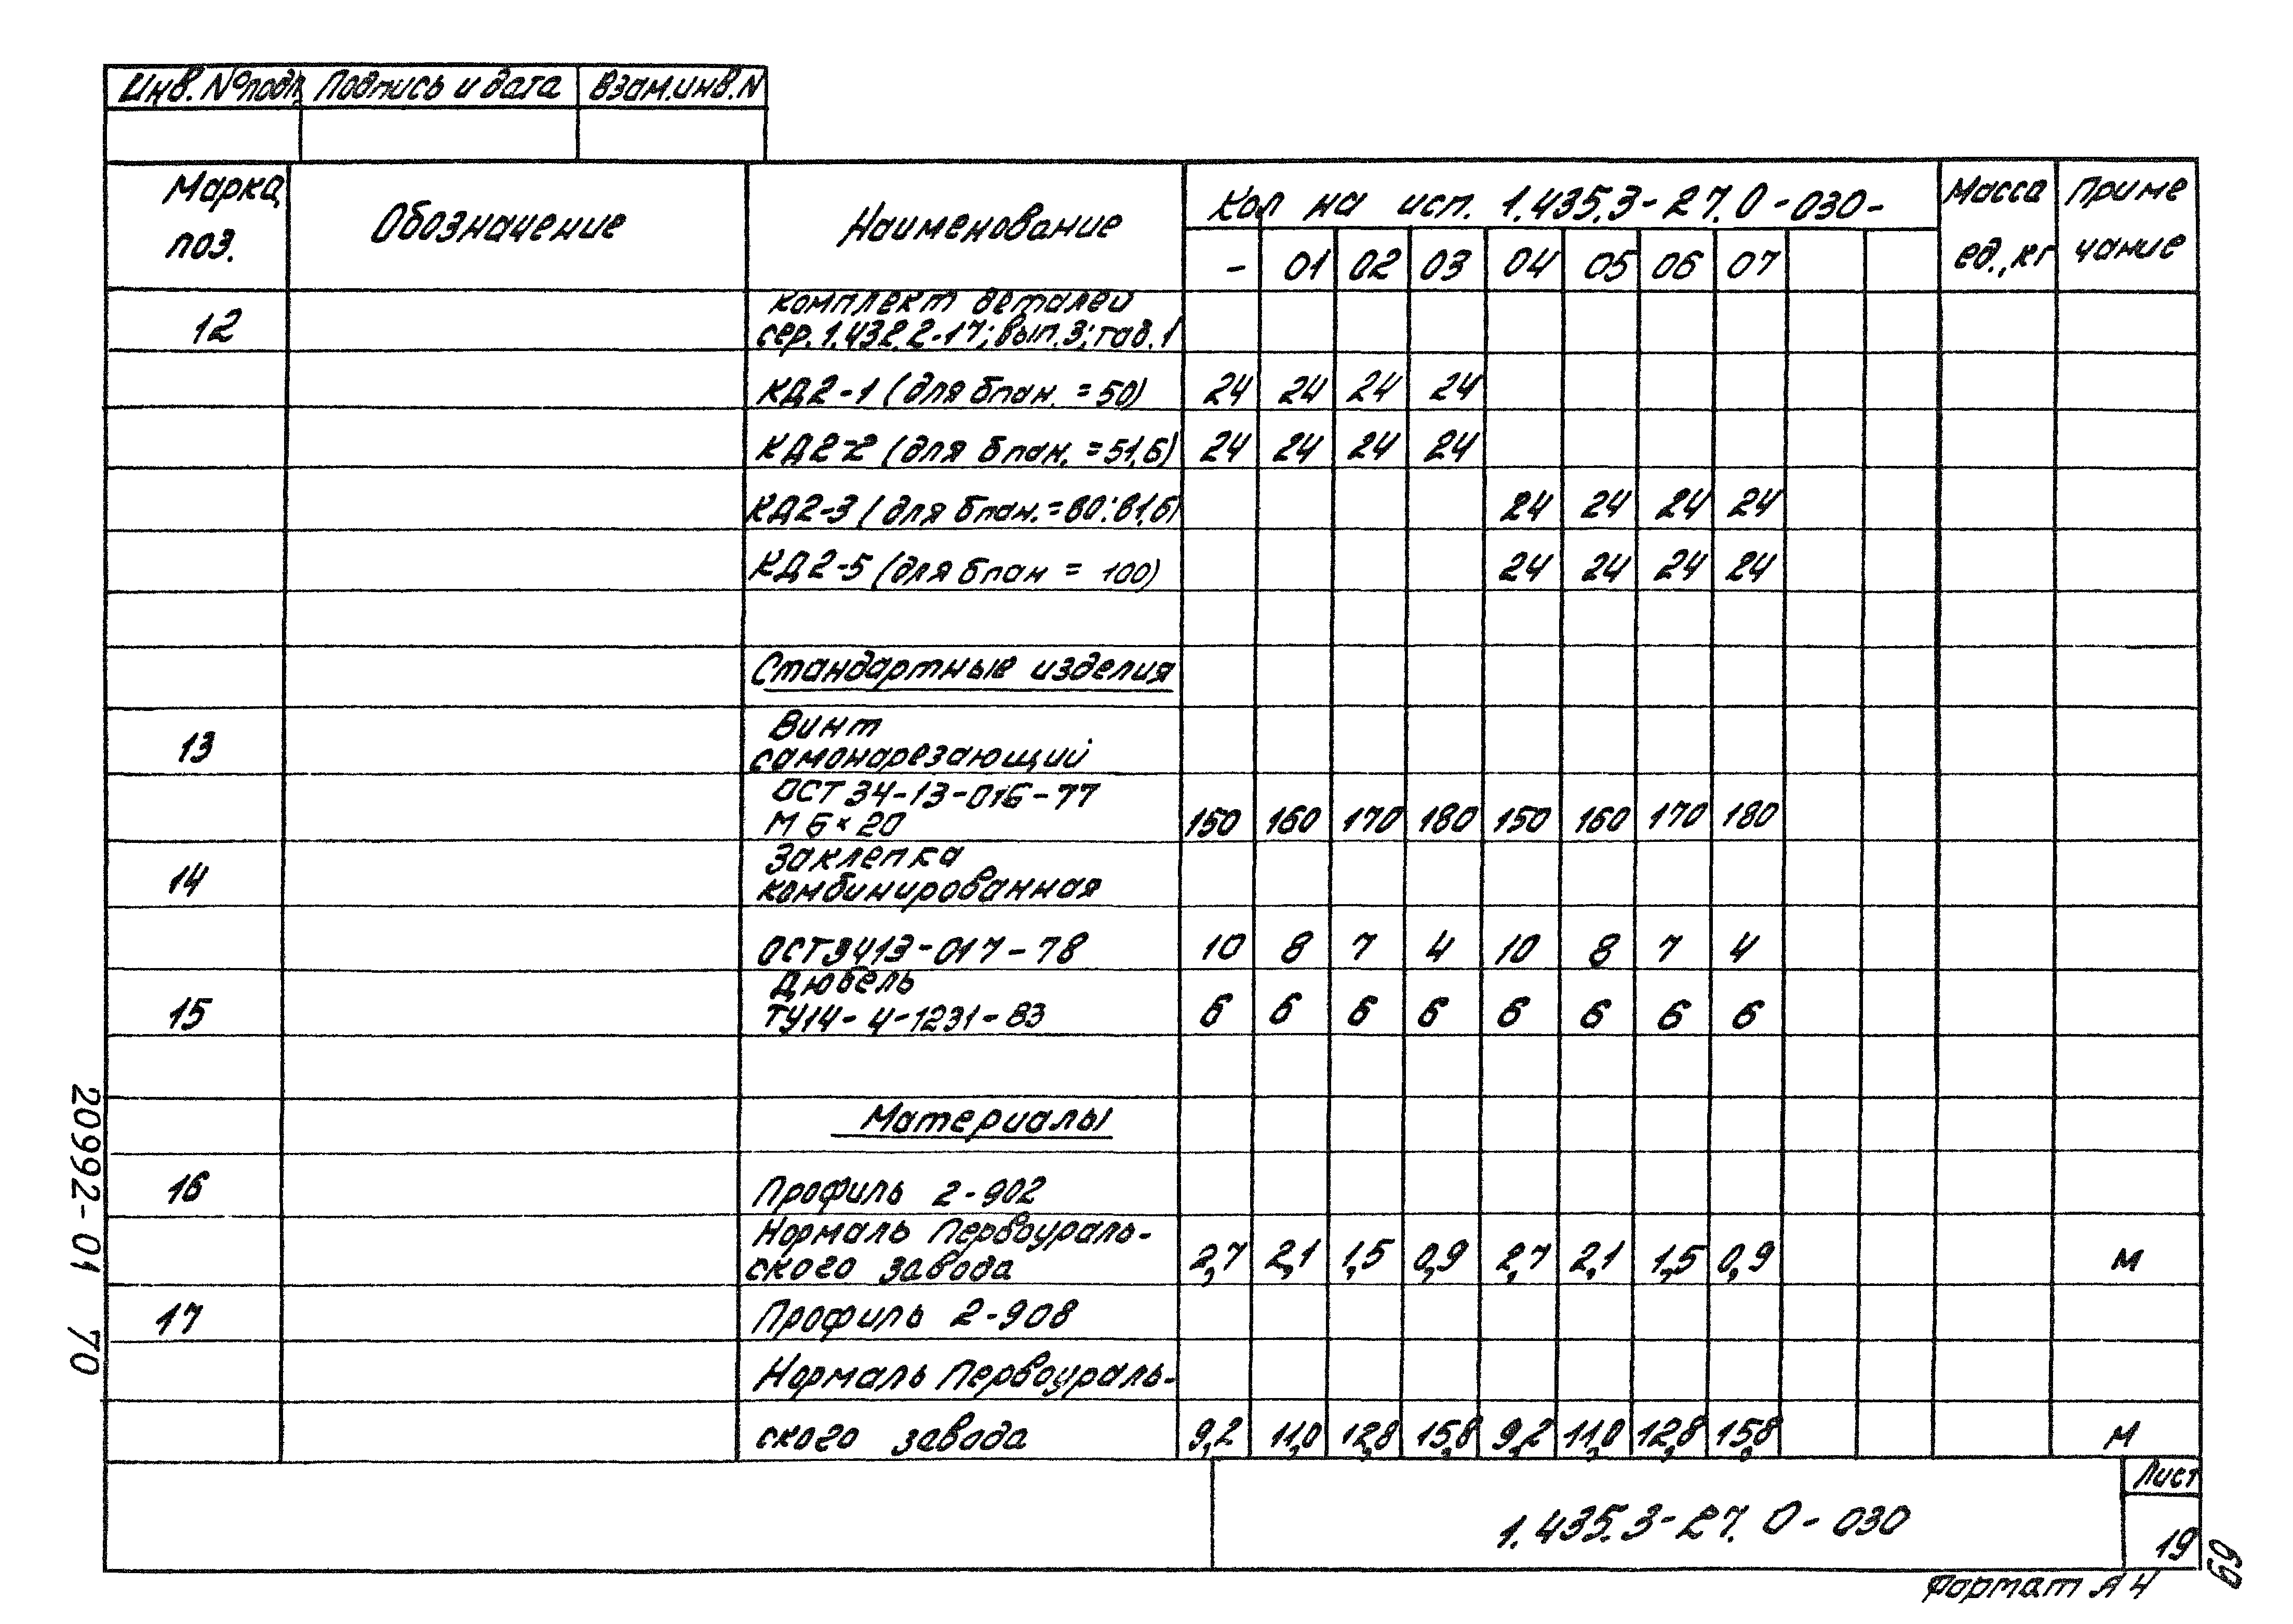 Инв. № подл. Подпись и дата Взам.инв.N
Марка, поз. Обозначение Наименование Кол на исп. 1.435.3-27.0-030- Масса ед.,кг Приме чание
- 01 02 03 04 05 06 07
12 комплект деталей
сер.1.432.2-17; вып.3; таб.1
КД2-1 (для бпан. = 50) 24 24 24 24
КД2-2 (для бпан. = 51,6) 24 24 24 24
КД2-3 (для бпан. = 80; 81,6) 24 24 24 24
КД2-5 (для бпан = 100) 24 24 24 24
Стандартные изделия
13 Винт
самонарезающий
ОСТ 34-13-016-77
М 6 × 20 150 160 170 180 150 160 170 180
14 Заклепка
комбинированная
ОСТ3413-017-78 10 8 7 4 10 8 7 4
15 Дюбель
ТУ14-4-1231-83 6 6 6 6 6 6 6 6
Материалы
16 Профиль 2-902
Нормаль Первоураль-
ского завода 2,7 2,1 1,5 0,9 2,7 2,1 1,5 0,9 м
17 Профиль 2-908
Нормаль Первоураль-
ского завода 9,2 11,0 12,8 15,8 9,2 11,0 12,8 15,8 м
1.435.3-27.0-030
Лист
19
Формат А4
69
20992-01 70